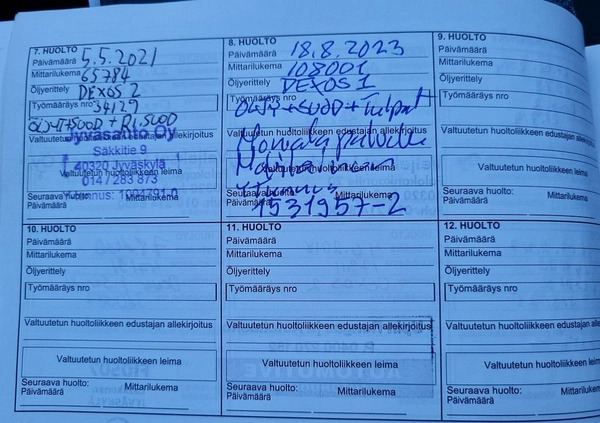 7. HUOLTO
Päivämäärä 5.5.2021
Mittarilukema 65784
Öljyerittely DEXOS 2
Työmääräys nro 34129
ÖLJYT+SUOD + RI.SUOD
Jyväsauto Oy
edustajan allekirjoitus
Säkkitie 9
Valtuutetun
40320 Jyväskylä
Valtuutetun huoltoliikkeen leima
014 / 283 873
Seuraava huolto:
Mittarilukema
Päivämäärä
8. HUOLTO
Päivämäärä 18.8.2023
Mittarilukema 108001
Öljyerittely DEXOS 1
Työmääräys nro
ÖLJY+SUOD+Tulpat
Valtuutetun huoltoliikkeen edustajan allekirjoitus
Valtuutetun huoltoliikkeen leima
Seuraava huolto:
Mittarilukema
Päivämäärä
1531957-2
9. HUOLTO
Päivämäärä
Mittarilukema
Öljyerittely
Työmääräys nro
Valtuutetun huoltoliikkeen edustajan
Valtuutetun huoltoliikkeen
Seuraava huolto:
Päivämäärä
10. HUOLTO
Päivämäärä
Mittarilukema
Öljyerittely
Työmääräys nro
Valtuutetun huoltoliikkeen edustajan allekirjoitus
Valtuutetun huoltoliikkeen leima
Seuraava huolto:
Mittarilukema
Päivämäärä
11. HUOLTO
Päivämäärä
Mittarilukema
Öljyerittely
Työmääräys nro
Valtuutetun huoltoliikkeen edustajan allekirjoitus
Valtuutetun huoltoliikkeen leima
Seuraava huolto:
Mittarilukema
Päivämäärä
12. HUOLTO
Päivämäärä
Mittarilukema
Öljyerittely
Työmääräys nro
Valtuutetun huoltoliikkeen edustajan
Valtuutetun huoltoliikkeen
Seuraava huolto:
Päivämäärä